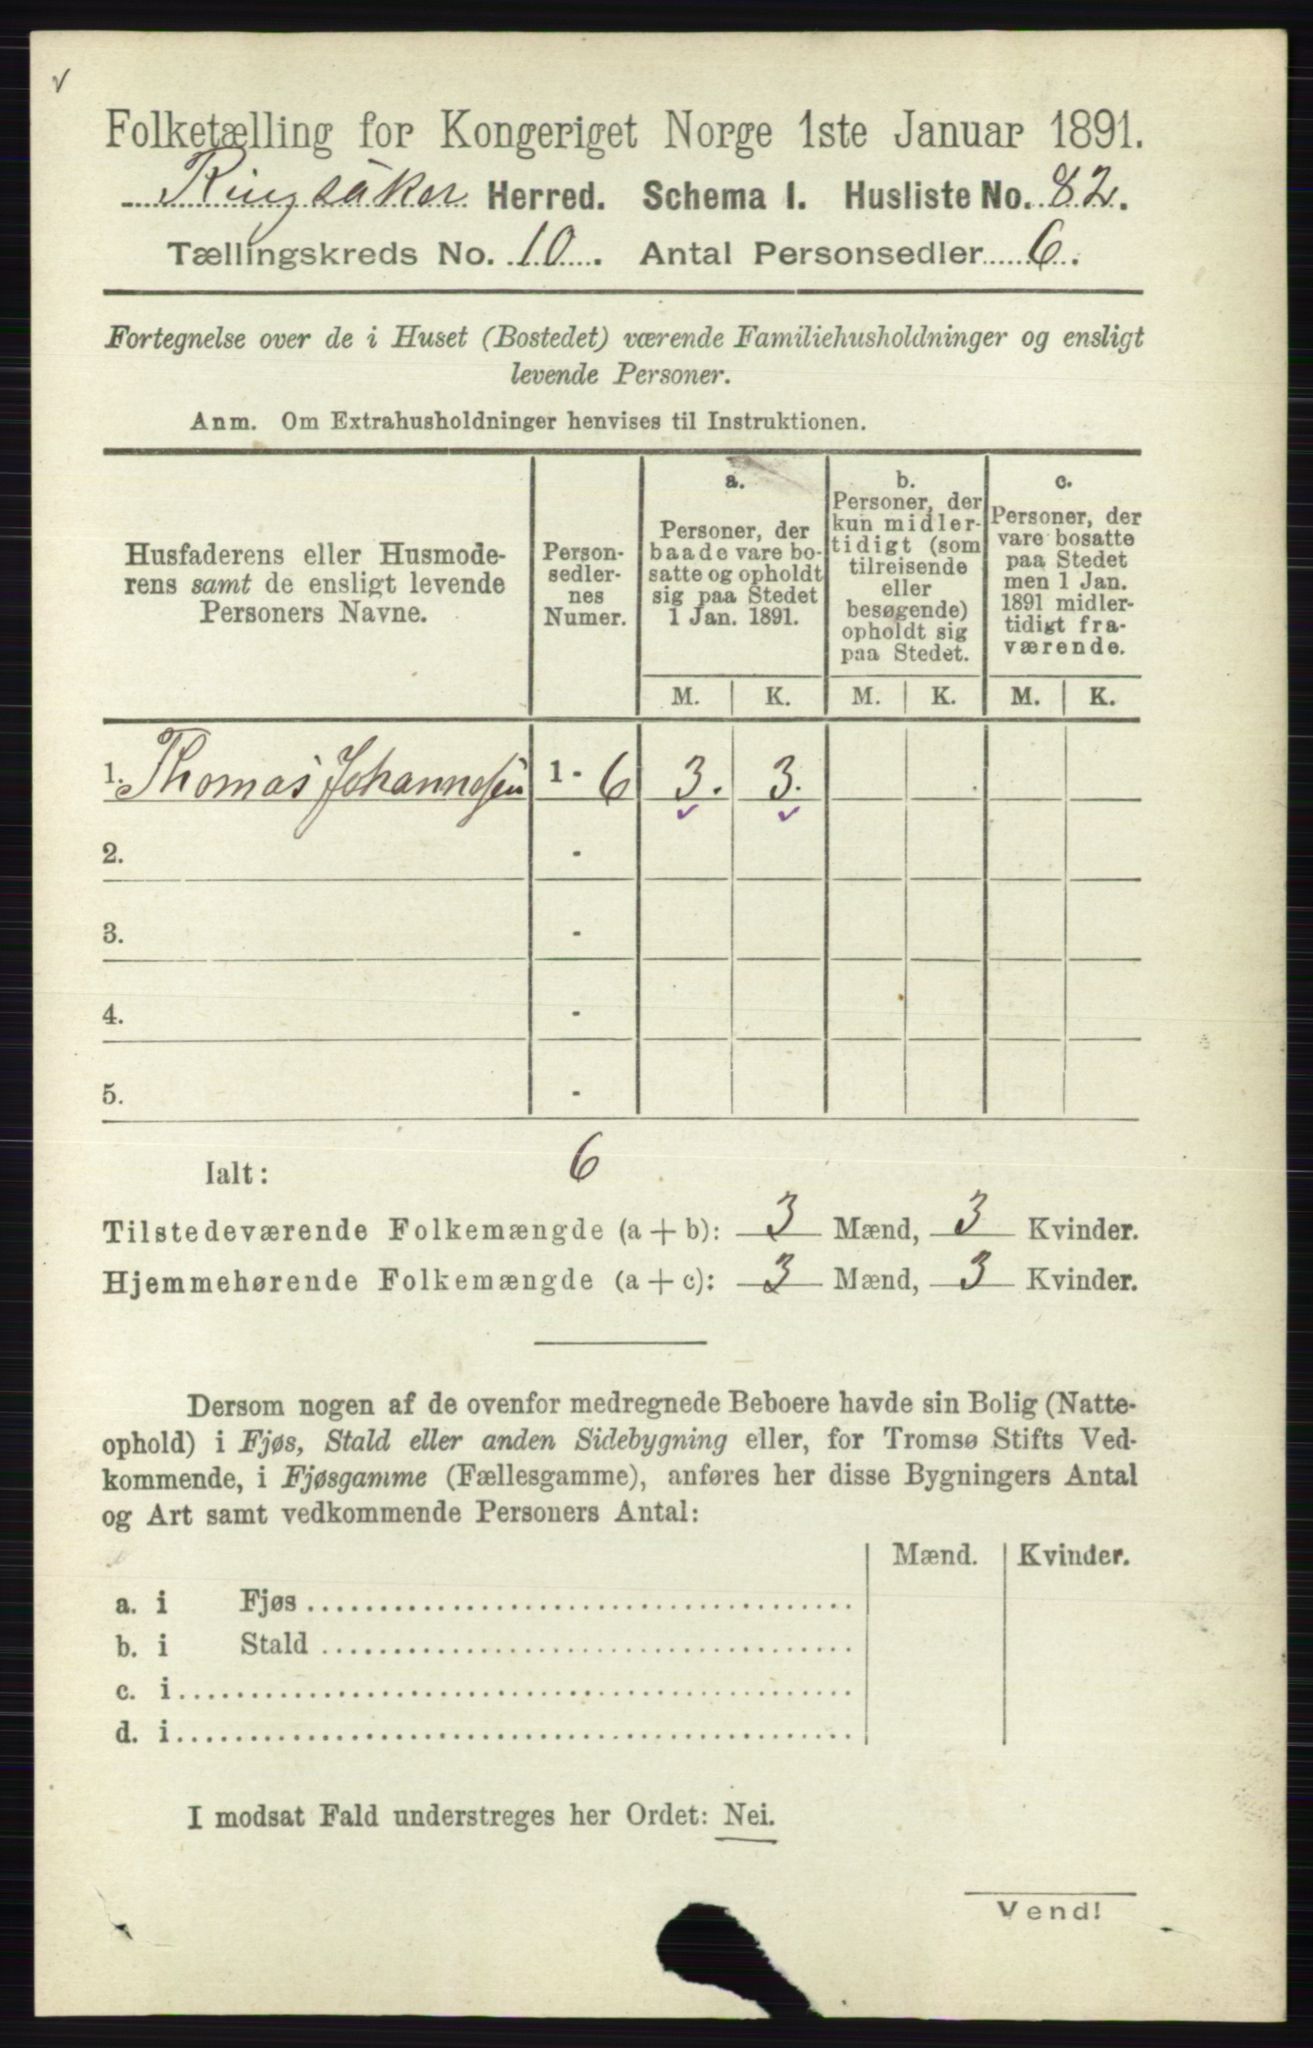 ✓
Folketælling for Kongeriget Norge 1ste Januar 1891.
Ringsaker Herred. Schema I. Husliste No. 82.
Tællingskreds No. 10. Antal Personsedler 6.
Fortegnelse over de i Huset (Bostedet) værende Familiehusholdninger og ensligt
levende Personer.
Anm. Om Extrahusholdninger henvises til Instruktionen.
Husfaderens eller Husmode-
rens samt de ensligt levende
Personers Navne.
Person-
sedler-
nes
Numer.
a.
Personer, der
baade vare bo-
satte og opholdt
sig paa Stedet
1 Jan. 1891.
b.
Personer, der
kun midler-
tidigt (som
tilreisende
eller
besøgende)
opholdt sig
paa Stedet.
c.
Personer, der
vare bosatte
paa Stedet
men 1 Jan.
1891 midler-
tidigt fra-
værende.
M. K. M. K. M. K.
1. Thomas Johannesen 1 - 6 3. 3.
✓ ✓
2. -
3. -
4. -
5. -
Ialt: 6
Tilstedeværende Folkemængde (a + b): 3 Mænd, 3 Kvinder.
Hjemmehørende Folkemængde (a + c): 3 Mænd, 3 Kvinder.
Dersom nogen af de ovenfor medregnede Beboere havde sin Bolig (Natte-
ophold) i Fjøs, Stald eller anden Sidebygning eller, for Tromsø Stifts Ved-
kommende, i Fjøsgamme (Fællesgamme), anføres her disse Bygningers Antal
og Art samt vedkommende Personers Antal:
Mænd. Kvinder.
a. i Fjøs
b. i Stald
c. i
d. i
I modsat Fald understreges her Ordet: Nei.
Vend!